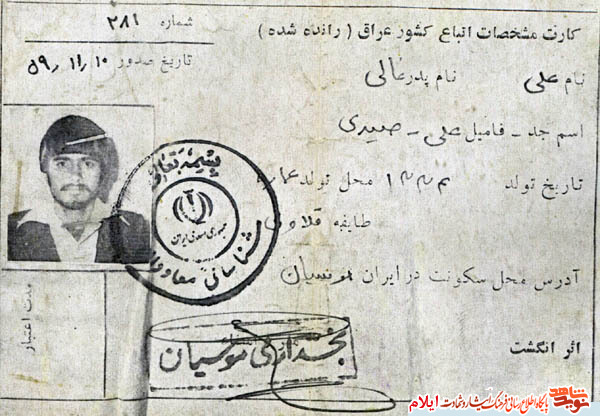 کارت مشخصات اتباع کشور عراق ( رانده شده )
شماره ۲۸۱
تاریخ صدور ۱۰ ر ۱۱ ر ۵۹
نام علی نام پدر غالی
اسم جد - فامیل علی - صیدی
تاریخ تولد محل تولد عماره
طایفه
آدرس محل سکونت در ایران موسیان
اثر انگشت
مدت اعتبار
بسمه تعالی
جمهوری اسلامی ایران
شناسائی
بخشداری موسیان
نوید شاهد
پایگاه اطلاع رسانی فرهنگ ایثار و شهادت ایلام